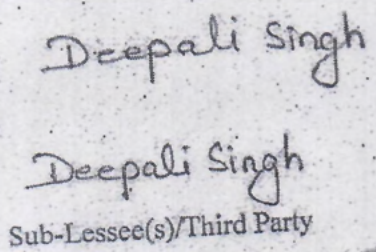 Deepali Singh
Deepali Singh
Sub-Lessee(s)/Third Party